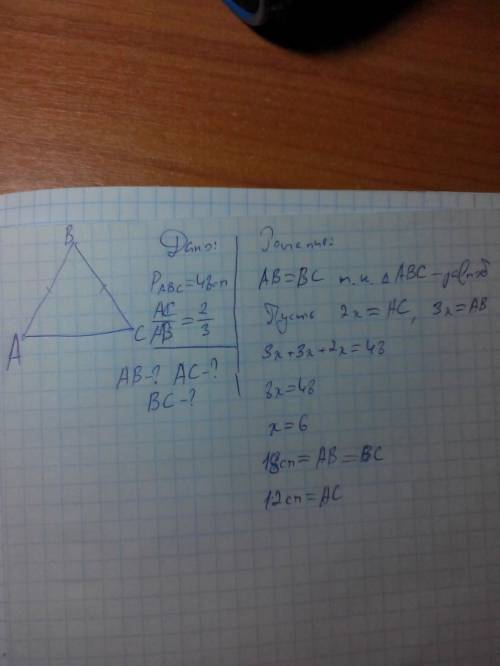 B
A
C
Дано:
P ABC = 48 см
AC/AB = 2/3
AB-? AC-?
BC-?
Решение:
AB = BC т.к. △ ABC - равноб
Пусть 2x = AC, 3x = AB
3x+3x+2x=48
8x=48
x=6
18см = AB = BC
12см = AC